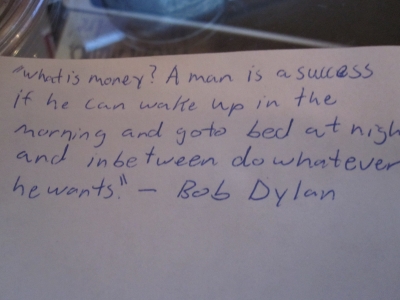 "what is money? A man is a success
if he can wake up in the
morning and goto bed at nigh
and inbetween do whatever
he wants." – Bob Dylan